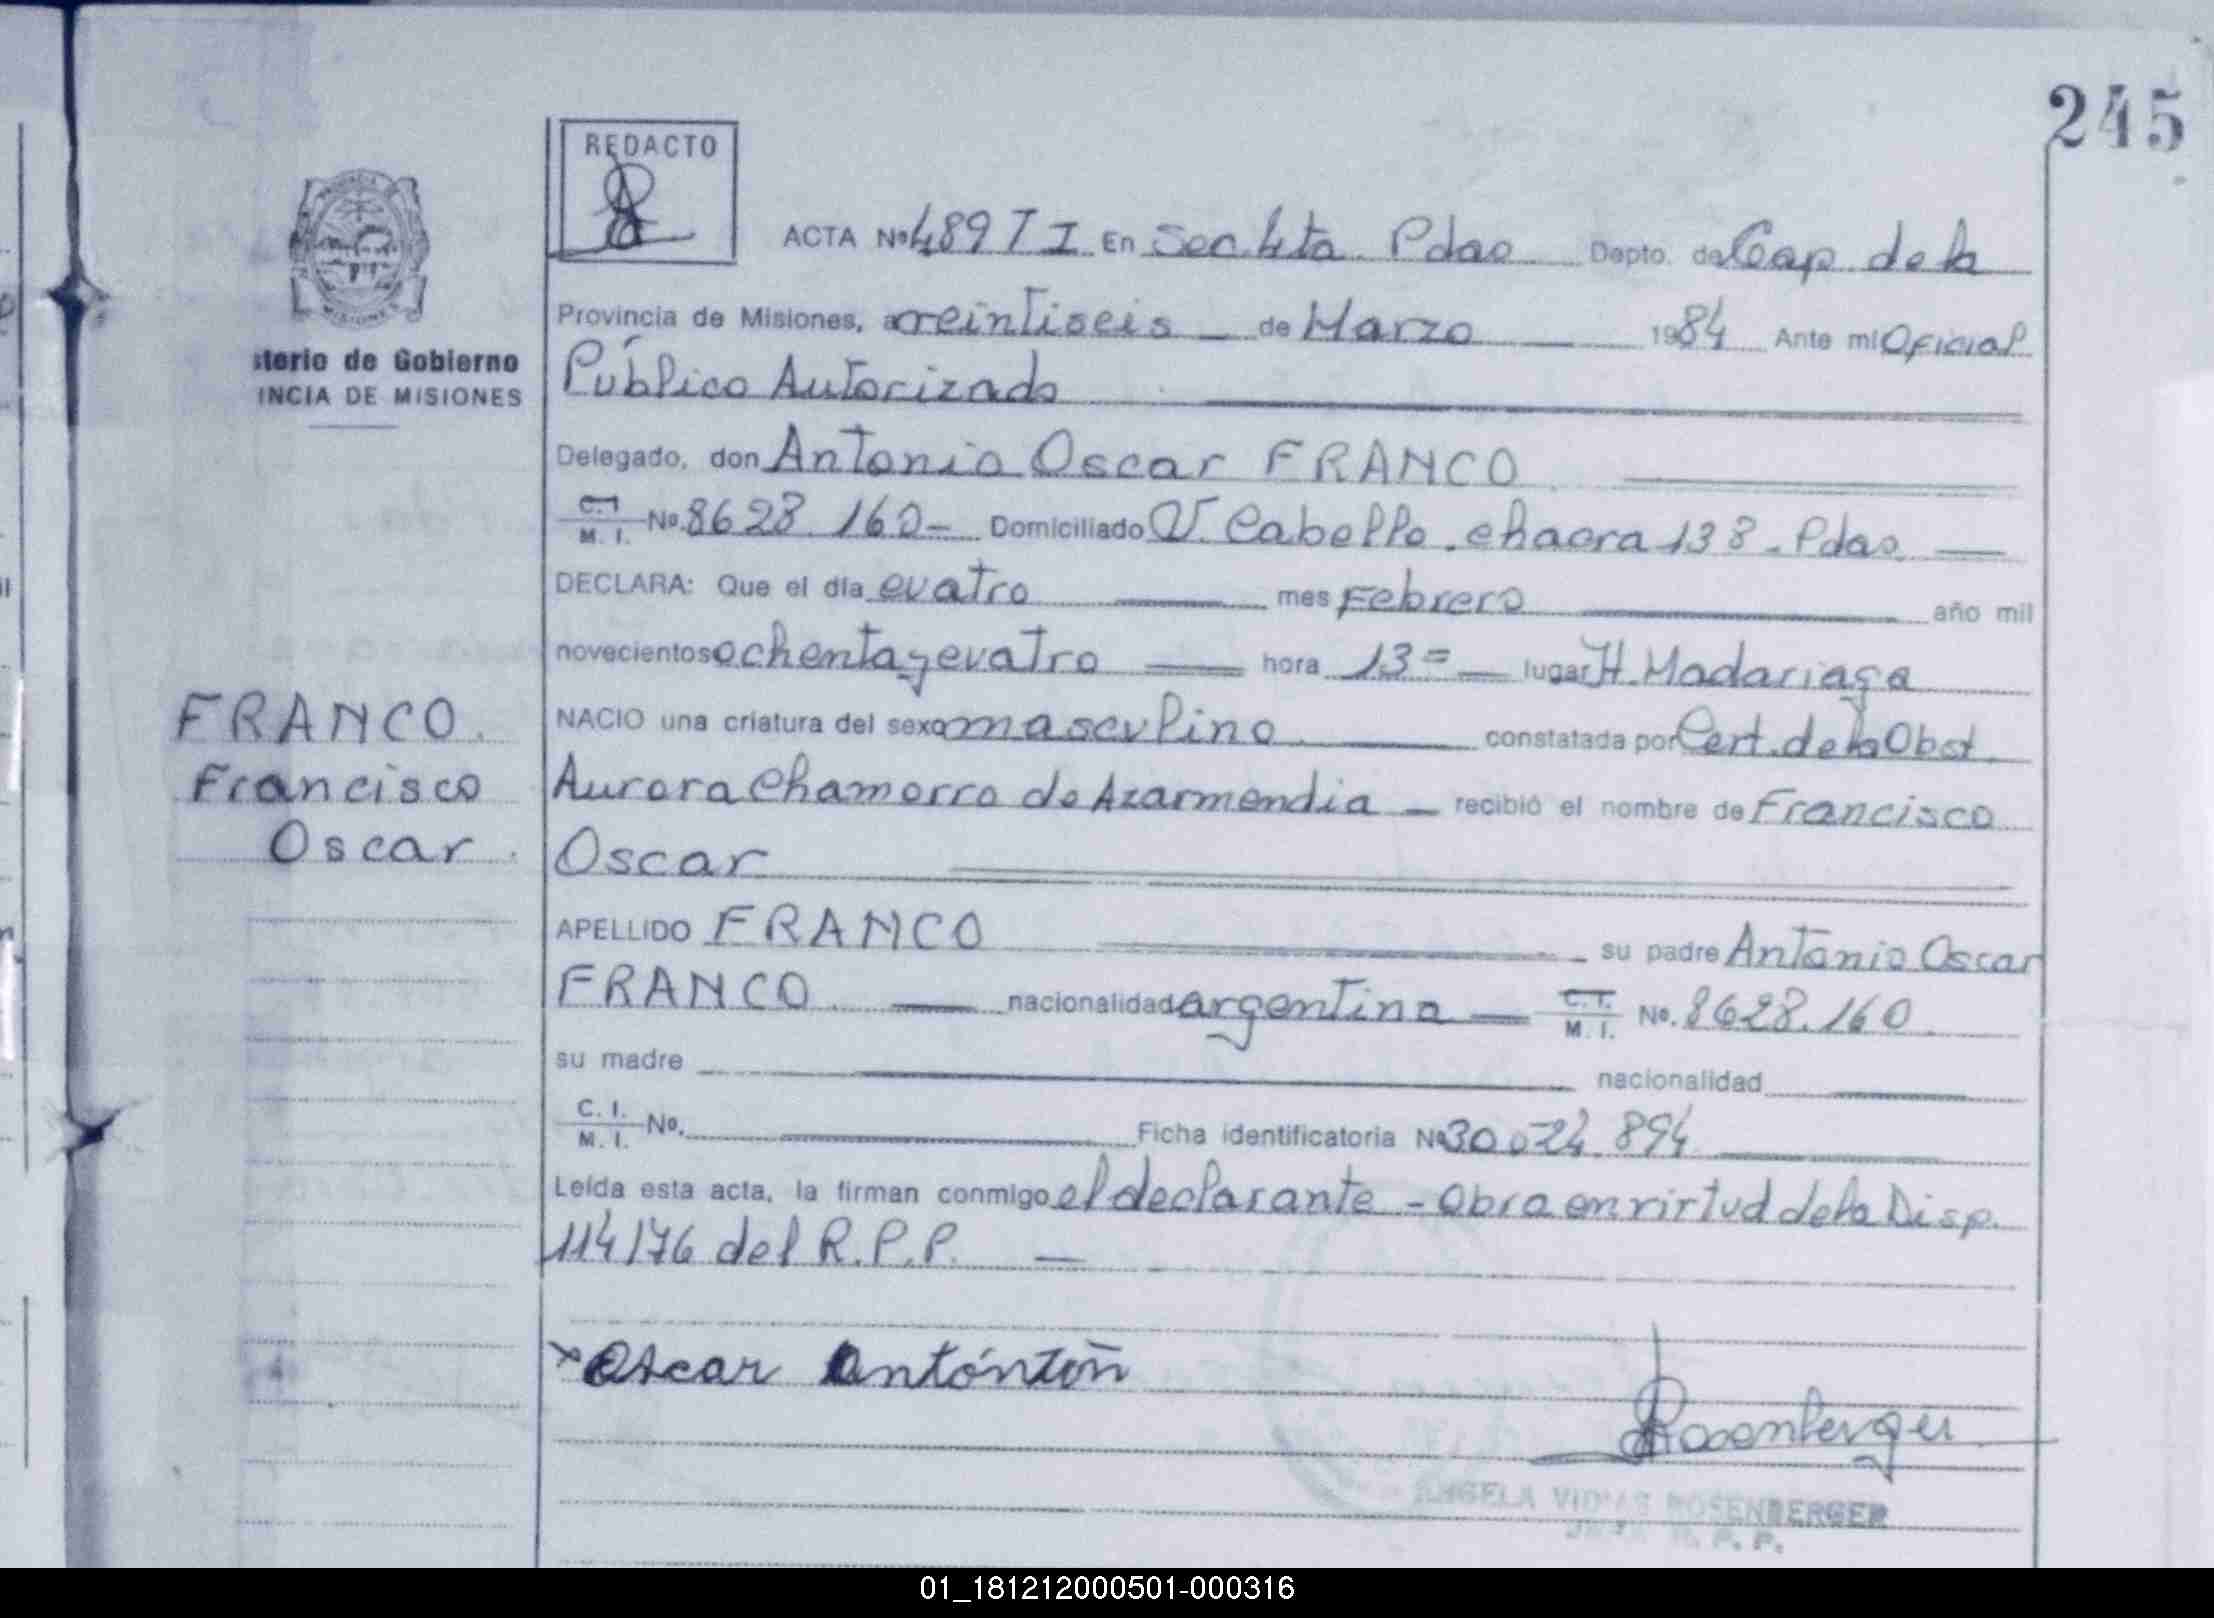 245
REDACTO
ACTA Nº 489 T I En Sec. 4ta. Pdas Depto. de Cap. de la
Provincia de Misiones, a veintiseis de Marzo 1984 Ante mi Oficial
sterio de Gobierno
INCIA DE MISIONES
Público Autorizado
Delegado, don Antonio Oscar FRANCO
C.I. M. I. Nº. 8628.160 Domiciliado V. Cabello. chacra 138. Pdas.
DECLARA: Que el día cuatro mes Febrero año mil
novecientos ochenta y cuatro hora 13= lugar H. Madariaga
FRANCO.
Francisco
Oscar.
NACIO una criatura del sexo masculino constatada por Cert. de la Obst.
Aurora Chamorro de Azarmendia recibió el nombre de Francisco
Oscar
APELLIDO FRANCO su padre Antonio Oscar
FRANCO nacionalidad argentina C.I. M. I. Nº. 8628.160
su madre nacionalidad
C. I. M. I. Nº. Ficha identificatoria Nº 30.024.894
Leída esta acta, la firman conmigo el declarante - Obra en virtud de la Disp.
114/76 del R.P.P.
Oscar
Rosenberger
ANGELA ROSENBERGER
R. P. P.
01_181212000501-000316